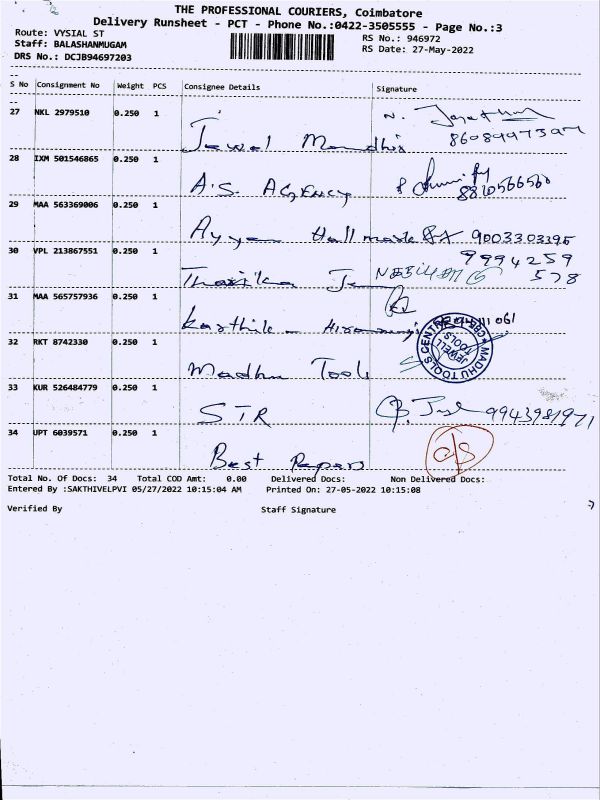 THE PROFESSIONAL COURIERS, Coimbatore
Delivery Runsheet - PCT - Phone No.:0422-3505555 - Page No.:3
Route: VYSIAL ST
RS No.: 946972
Staff: BALASHANMUGAM
RS Date: 27-May-2022
DRS No.: DCJB94697203
S No Consignment No Weight PCS Consignee Details Signature
27 NKL 2979510 0.250 1
Jewel
8608997597
28 IXM 501546865 0.250 1
A.S. AGENCY
29 MAA 563369006 0.250 1
Ayyan Hall mark 9003303395
30 VPL 213867551 0.250 1
9994259
Tharika 578
31 MAA 565757936 0.250 1
Karthik
32 RKT 8742330 0.250 1
Madhu Tools
MADHU TOOLS CENTRE
JEWELL TOOLS
33 KUR 526484779 0.250 1
STR 9943981971
34 UPT 6039571 0.250 1
Best Papers
Total No. Of Docs: 34 Total COD Amt: 0.00 Delivered Docs: Non Delivered Docs:
Entered By :SAKTHIVELPVI 05/27/2022 10:15:04 AM Printed On: 27-05-2022 10:15:08
Verified By Staff Signature